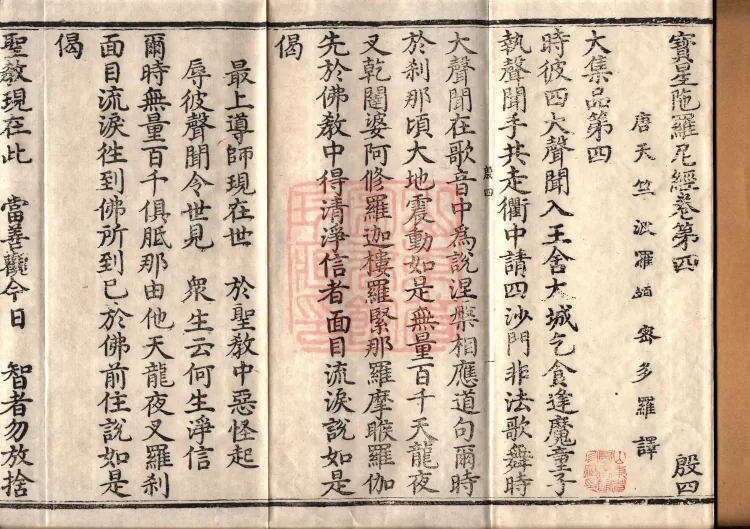 寶星陁羅尼經卷第四 殷四
唐天竺波羅𮟏密多羅譯
大集品第四
時彼四大聲聞入王舍大城乞食逢魔童子
執聲聞手共走衢中請四沙門非法歌舞時
大聲聞在歌音中為說涅槃相應道句爾時
殷四
於刹那頃大地震動如是無量百千天龍夜
叉乾闥婆阿修羅迦樓羅緊那羅摩睺羅伽
先於佛教中得清淨信者面目流淚說如是
偈
最上導師現在世 於聖教中惡怪起
辱彼聲聞令世見 衆生云何生淨信
爾時無量百千俱胝那由他天龍夜叉羅刹
面目流淚徃到佛所到已於佛前住說如是
偈
聖教現在此 當善觀今日 智者勿放捨